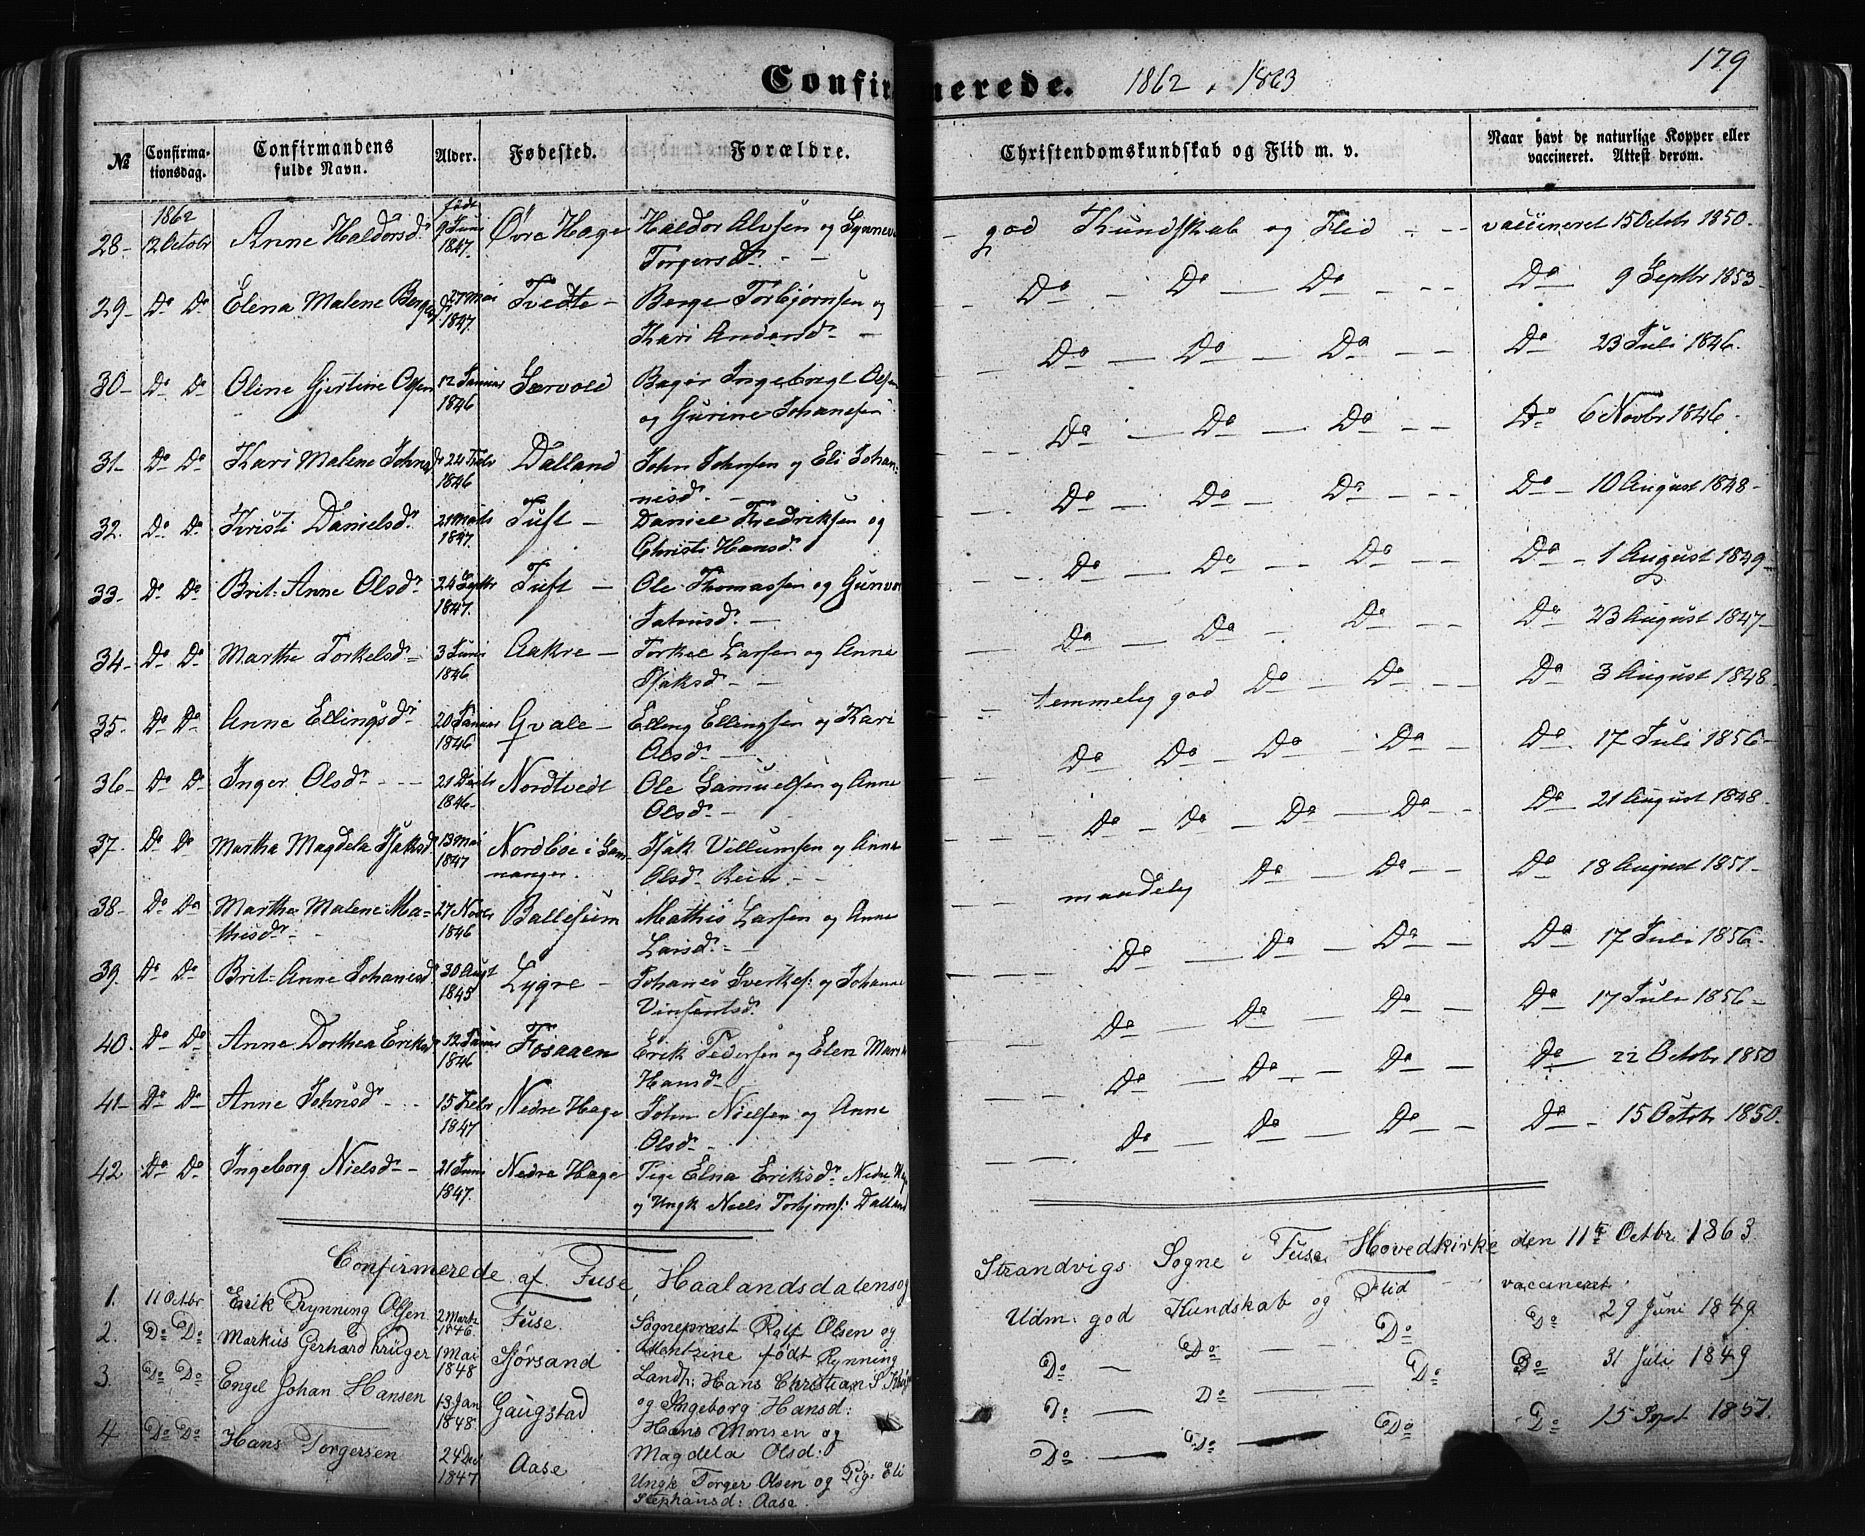 179
Confirmerede. 1862, 1863
№ Confirmationsdag. Confirmandens fulde Navn. Alder. Fødested. Forældre. Christendomskundskab og Flid m. v. Naar havt de naturlige Kopper eller vaccineret. Attest derom.
1862 født
28- 12 Octobr Anne Haldorsdr 9 Juni 1847. Øvre Hage Haldor Alvsen og Synneva Torgersdr - - god Kundskab og Flid - - vaccineret 15 Octobr 1850.
29- Do Do Elena Malene Bergesdr 27 Mai 1847. Tvedte - Berge Torbjørnsen og Kari Andersdr - Do - Do - Do - - Do 9 Septbr 1853-
30- Do Do Oline Gjertine Olsen 12 Januar 1846 Særvold Bagør Ingebregt Olsen og Gurine Johanesen Do - Do - Do - - Do 23 Juli 1846.
31- Do Do Kari Malene Johnsdr 24 Febr 1846 Dalland John Johnsen og Eli Johannisdr - Do - Do - Do - - Do 6 Novbr 1846.
32. Do Do Kristi Danielsdr 21 Marts 1847. Tuft - Daniel Fredriksen og Christi Hansdr Do - Do - Do - - Do - 10 August 1848-
33- Do Do Brit-Anne Olsdr 24 Septbr 1847. Tuft - Ole Thomassen og Gunvor - Do - Do - Do - - Do - 1 August 1849-
34- Do Do Martha Torkelsdr - 3 Juni 1846 Aakre - Torkel Larsen og Anne Isaksdr - - Do - Do - Do - Do 23 August 1847-
35- Do Do Anne Ellingsdr 20 Januar 1846 Qvale - Elling Ellingsen og Kari Olsdr - temmelig god Do - Do - Do - 3 August 1848-
36- Do Do Inger Olsdr - - 21 Decbr 1846- Nordtvedt Ole Samuelsen og Anne Olsdr - Do Do - Do - Do - Do - 17 Juli 1856-
37. Do Do Martha Magdela Isaksdr 13 Mai 1847 Nordbøe i Samnanger. Isak Villumsen og Anne Olsdr - - Do - Do - Do - Do - Do - 21 August 1848-
38- Do Do Martha Malene Mathisdr - 27 Novbr 1846 Ballesum Mathis Larsen og Anne Larsdr - maadelig Do - Do - Do 18 August 1851-
39. Do Do Brit-Anne Johanesdr 30 Augst 1845 Lygre - Johanes Sverkes: og Johanne Vinsentsdr Do - Do - Do - Do - 17 Juli 1856-
40. Do Do Anne Dorthea Eriksdr 12 Januar 1846 Fosaaen Erik Pedersen og Elen Hansdr - Do - Do - Do - Do - 17 Juli 1856-
41- Do Do Anne Johnsdr - - 15 Febr 1847 Nedre Hage John Nielsen og Anne Olsdr - Do - Do - Do - Do - 22 Octobr 1850
42 Do Do Ingeborg Nielsdr - 21 Juni 1847. Nedre Hage Pige Elna Eriksdr Nedre Hage og Ungk Niels Torbjørns: Dalland Do - Do - Do - Do - 15 Octobr 1850.
Confirmerede af Fuse, Haalandsdalens og Strandvigs Sogne i Fuse Hovedkirke den 11te Octbr 1863.
1. 11 Octbr Erik Rynning Olsen 2 Marts 1846. Fuse. Sognepræst Rolf Olsen og født Rynning Udm: god Kundskab og Flid vaccineret Do 29 Juni 1849
2. Do Do Markus Gerhard Krüger 1 Mai 1848 Sjørsand Landh: Hans Christian S Krüger og Ingeborg Hansd: Do - Do - Do Do 31 Juli 1849
3. Do Do Engel Johan Hansen 13 Jan 1848. Gaugstad Hans Monsen og Magdela Olsd: Do - Do - Do Do 15 Sept 1851.
4 Do Do Hans Torgersen 24 Dec 1847 Aase Ungk Torger Olsen og Pig: Eli Stephansd: Aase. Do - Do - Do